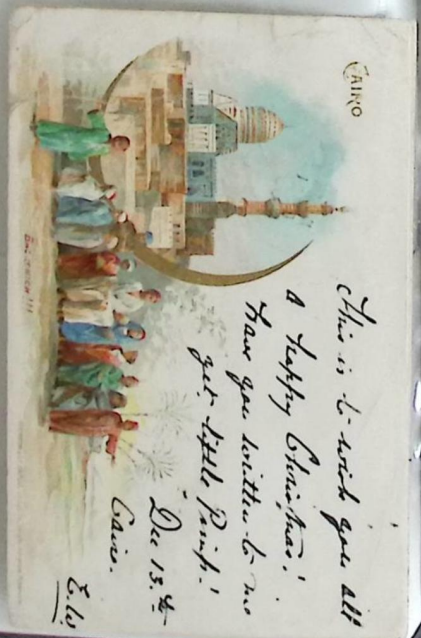 CAIRO
This is to wish you all
a happy Christmas!
Have you written to me
yet, little Pimp!
Dec 13.th
Cairo.
E.W